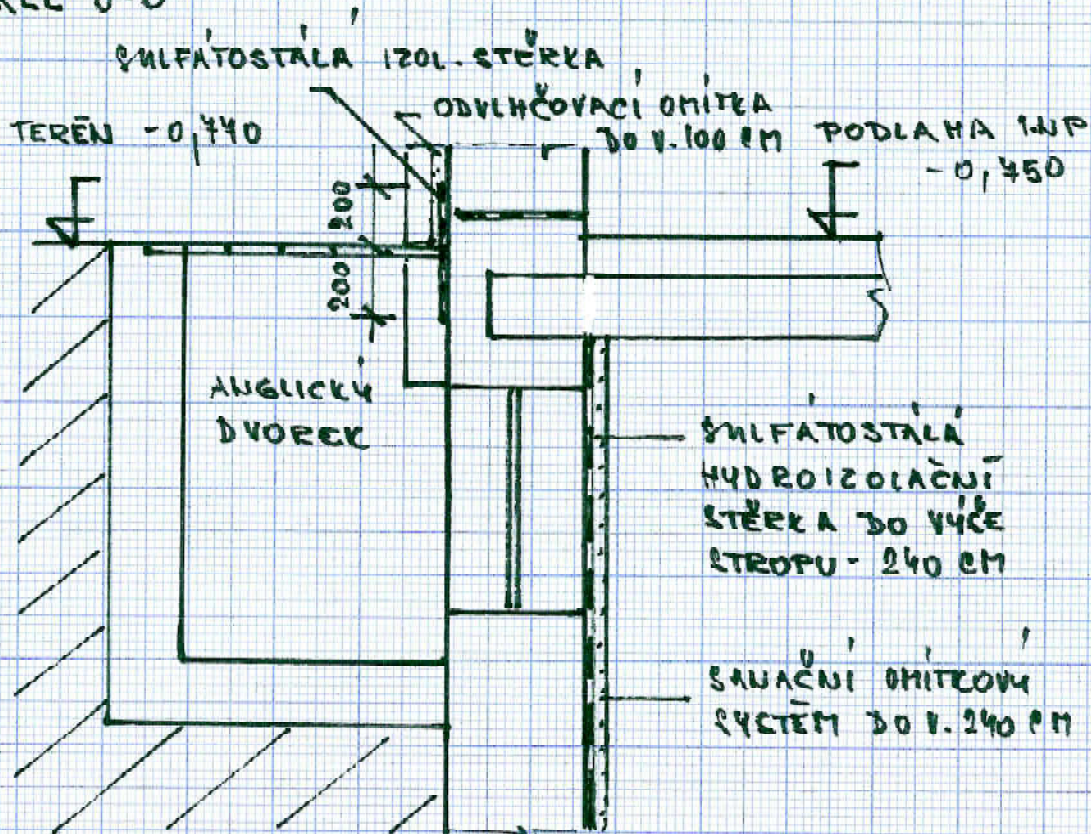 SULFÁTOSTÁLÁ IZOL. STĚRKA
ODVLHČOVACÍ OMÍTKA
DO V. 100 CM
TERÉN -0,770
PODLAHA 1.NP
-0,750
200
200
ANGLICKÝ
DVOREK
SULFÁTOSTÁLÁ
HYDROIZOLAČNÍ
STĚRKA DO VÝŠE
STROPU - 240 CM
SANAČNÍ OMÍTKOVÝ
SYSTÉM DO V. 240 CM